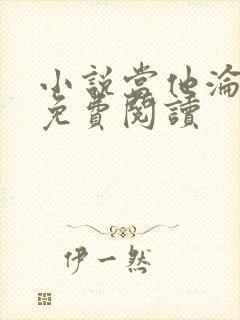 小說當他淪
免費閱讀
伊一然